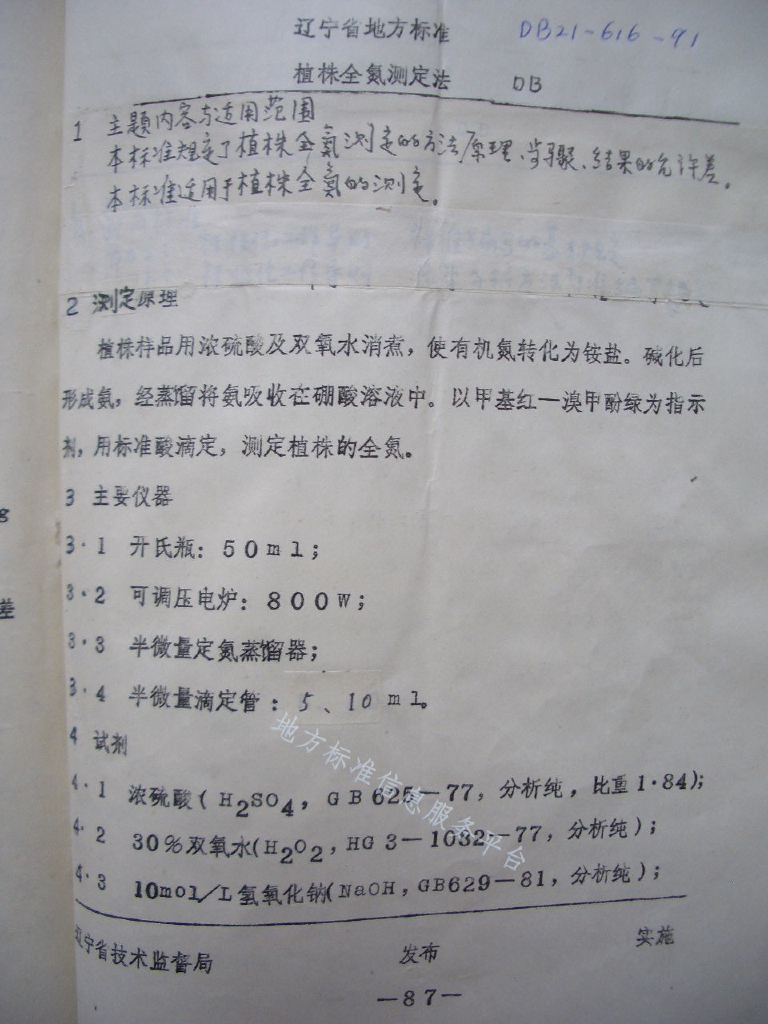 辽宁省地方标准 DB21-616-91
植株全氮测定法 DB
1 主题内容与适用范围
本标准规定了植株全氮测定的方法原理、步骤、结果的允许差。
本标准适用于植株全氮的测定。
2 测定原理
植株样品用浓硫酸及双氧水消煮，使有机氮转化为铵盐。碱化后
形成氨，经蒸馏将氨吸收在硼酸溶液中。以甲基红—溴甲酚绿为指示
剂，用标准酸滴定，测定植株的全氮。
3 主要仪器
3·1 开氏瓶：50ml；
3·2 可调压电炉：800W；
3·3 半微量定氮蒸馏器；
3·4 半微量滴定管：5、10ml。
4 试剂
4·1 浓硫酸(H₂SO₄，GB625—77，分析纯，比重1·84)；
4·2 30%双氧水(H₂O₂，HG3—1082—77，分析纯)；
4·3 10mol/L氢氧化钠(NaOH，GB629—81，分析纯)；
辽宁省技术监督局 发布 实施
—87—
地方标准信息服务平台
8
差